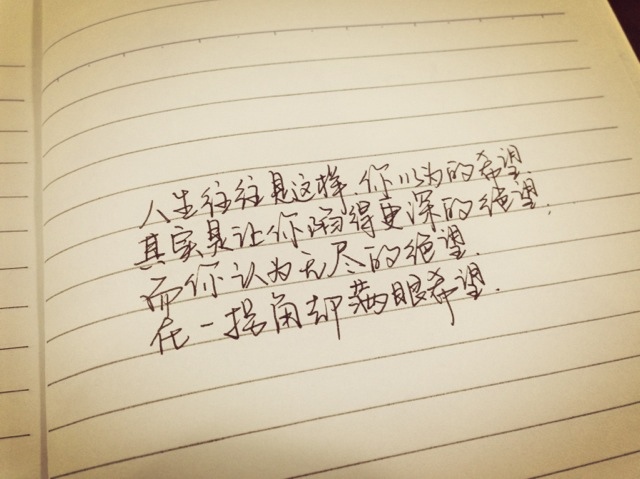 人生往往是这样,你以为的希望,
其实是让你陷得更深的绝望,
而你认为无尽的绝望,
在一拐角却满眼希望.